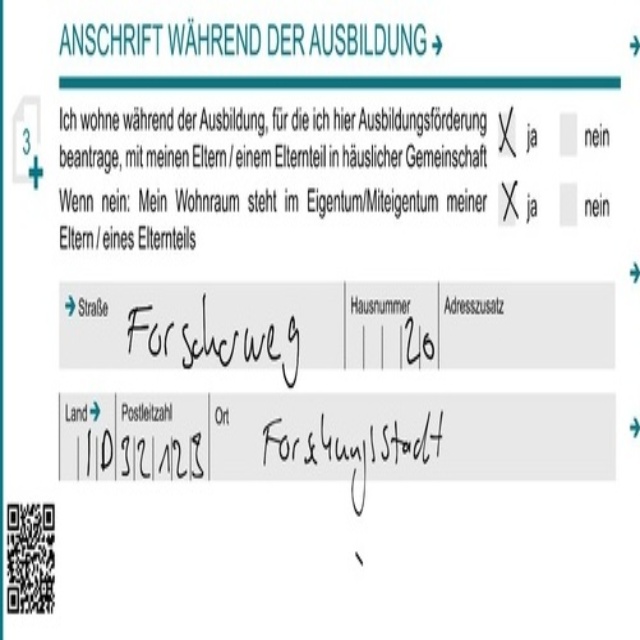 ANSCHRIFT WÄHREND DER AUSBILDUNG
3
Ich wohne während der Ausbildung, für die ich hier Ausbildungsförderung
beantrage, mit meinen Eltern / einem Elternteil in häuslicher Gemeinschaft
X ja nein
Wenn nein: Mein Wohnraum steht im Eigentum/Miteigentum meiner
Eltern / eines Elternteils
X ja nein
Straße Forscherweg
Hausnummer 20
Adresszusatz
Land D
Postleitzahl
Ort Forschungsstadt